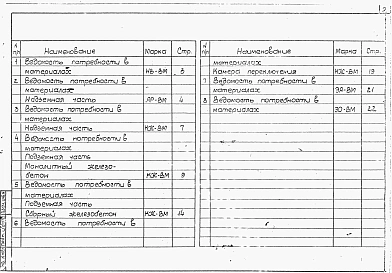 1 2
N пп Наименование Марка Стр.
1 Ведомость потребности в
материалах КЖ-ВМ 3
2 Ведомость потребности в
материалах
Надземная часть АР-ВМ 4
3 Ведомость потребности в
материалах
Надземная часть КЖ-ВМ 7
4 Ведомость потребности в
материалах
Подземная часть
Монолитный железо-
бетон КЖ-ВМ 9
5 Ведомость потребности в
материалах
Подземная часть
Сборный железобетон КЖ-ВМ 14
6 Ведомость потребности в
N пп Наименование Марка Стр.
материалах
Камера переключения КЖ-ВМ 19
7 Ведомость потребности в
материалах ЭЛ-ВМ 21
8 Ведомость потребности в
материалах ЭО-ВМ 22